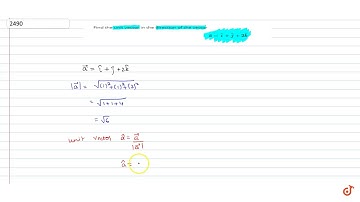 2490
Find the unit vector in the direction of the vector
a = i + j + 2k
a⃗ = î + ĵ + 2k̂
|a⃗| = √(1)²+(1)²+(2)²
= √1+1+4
= √6
unit vector â = a⃗/|a⃗|
â =